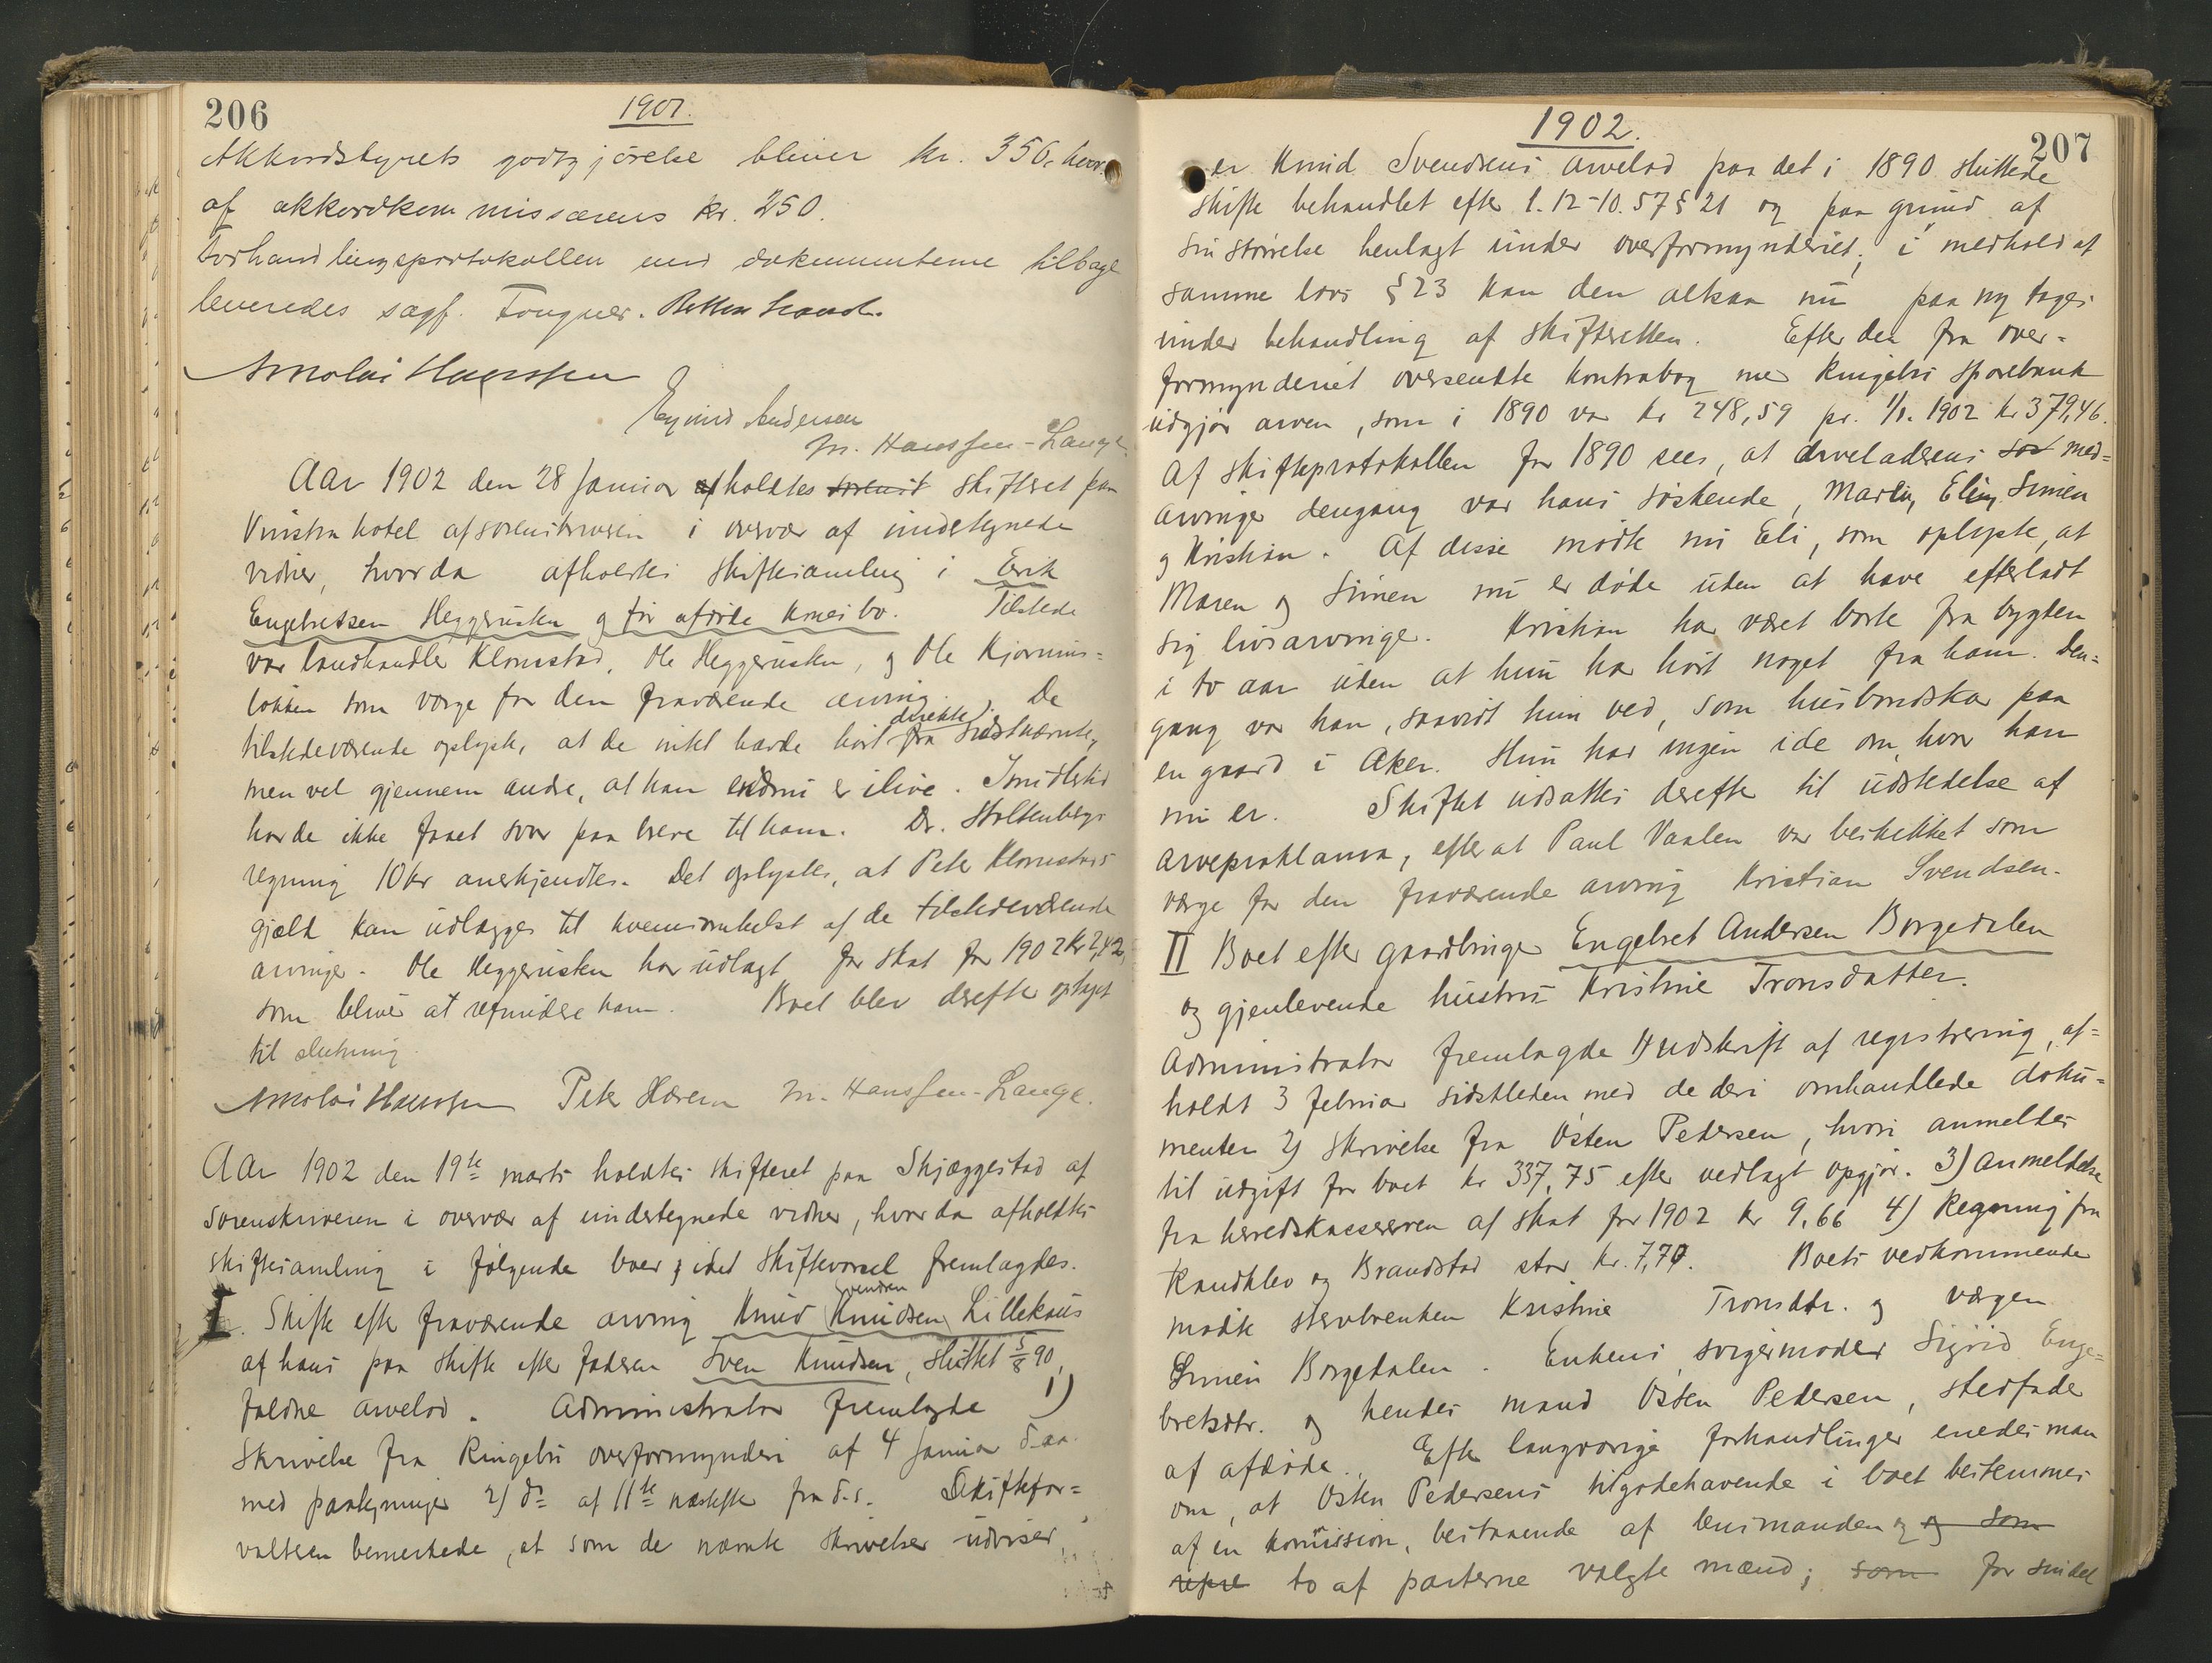 206
1901.
Akkordstyrets godtgjørelse bliver kr. 350, hvor-
af akkordkommissærens kr. 250.
Forhandlingsprotokollen med dokumenterne tilbage
leveredes sagf. Fougner. Retten hævet.
Nicolai Hanssen
Eyvind Andersen
M. Hanssen-Lange
Aar 1902 den 28 Januar afholdtes sorenst skifteret paa
Vinstra hotel af sorenskriveren i overvær af undertegnede
vidner, hvorda afholdtes skiftesamling i Erik
Engebretsen Heggerusten og før afdøde kones bo. Tilstede
var landhandler Klomstad, Ole Heggerusten, og Ole Kjorums-
løkken som værge for den fraværende arving. De
tilstedeværende oplyste, at de intet havde hørt direkte fra sidstnævnte,
men vel gjennem andre, at han endnu er ilive. Imidlertid
havde ikke faaet svar paa breve til ham. Dr. Stoltenbergs
regning 10 kr anerkjendtes. Det oplystes, at Peter Klomstads
gjæld kan udlægges til hvemsomhelst af de tilstedeværende
arvinger. Ole Heggerusten har udlagt for skat for 1902 kr 2,42,
som bliver at refundere ham. Boet blev derefter optaget
til slutning.
Nicolai Hanssen Peter Hærem M. Hanssen-Lange.
Aar 1902 den 19te marts holdtes skifteret paa Skjæggestad af
sorenskriveren i overvær af undertegnede vidner, hvorda afholdtes
skiftesamling i følgende boer, idet skiftevarsel fremlagdes.
I. Skifte efter fraværende arving Knud Svendsen Knudsen Lillekaus
af hans paa skifte efter faderen Sven Knudsen, sluttet 5/8 90,
faldne arvelod. Administrator fremlagde 1)
Skrivelse fra Ringebu overformynderi af 4 Januar d. aa.
med paategninger 2) do af 11te næstefter fra d. s. Skiftefor-
valteren bemerkede, at som de nævnte skrivelser udviser,
1902.
207
er Knud Svendsens arvelod paa det i 1890 sluttede
skifte behandlet efter l. 12-10.57 § 21 og paa grund af
sin størrelse henlagt under overformynderiet; i medhold af
samme lovs § 23 kan den altsaa nu paa ny tages
under behandling af skifteretten. Efter den fra over-
formynderiet oversendte kontrabog med Ringebu sparebank
udgjør arven, som i 1890 var kr 248,59 pr. 1/1. 1902 kr 379,46.
Af skifteprotokollen for 1890 sees, at arveladerens sø med-
arvinger dengang var hans søskende, Marlin, Eling, Simen
og Kristian. Af disse mødte nu Eli, som oplyste, at
Maren og Simen nu er døde uden at have efterladt
sig livsarvinge. Kristian har været borte fra bygden
i to aar uden at hun har hørt noget fra ham. Den-
gang var han, saavidt hun ved, som husbondskar paa
en gaard i Aker. Hun har ingen ide om, hvor han
nu er. Skiftet udsattes derefter til udstedelse af
arveproklama, efter at Paul Vaalen var beskikket som
værge for den fraværende arving Kristian Svendsen.
II Boet efter gaardbruger Engebret Andersen Borgedalen
og gjenlevende hustru Kristine Tronsdatter.
Administrator fremlagde 1) udskrift af registrering, af-
holdt 3 februar sidstleden med de deri omhandlede doku-
menter 2) skrivelse fra Østen Pedersen, hvori anmeldes
til udgift for boet kr 337,75 efter vedlagt opgjør. 3) anmeldelse
fra herredskassereren af skat for 1902 kr 9,66 4) Regning fra
Randklev og Brandstad stor kr. 7,70. Boets vedkommende
mødte stervboenken Kristine Tronsdtr. og værgen
Simen Borgedalen. Enkens svigermoder Sigrid Enge-
bretsdtr. og hendes mand Østen Pedersen, stedfader
af afdøde. Efter langvarige forhandlinger enedes man
om, at Østen Pedersens tilgodehavende i boet bestemmes
af en komission, bestaaende af lensmanden og og som
repre to af parterne valgte mænd; som for sin del